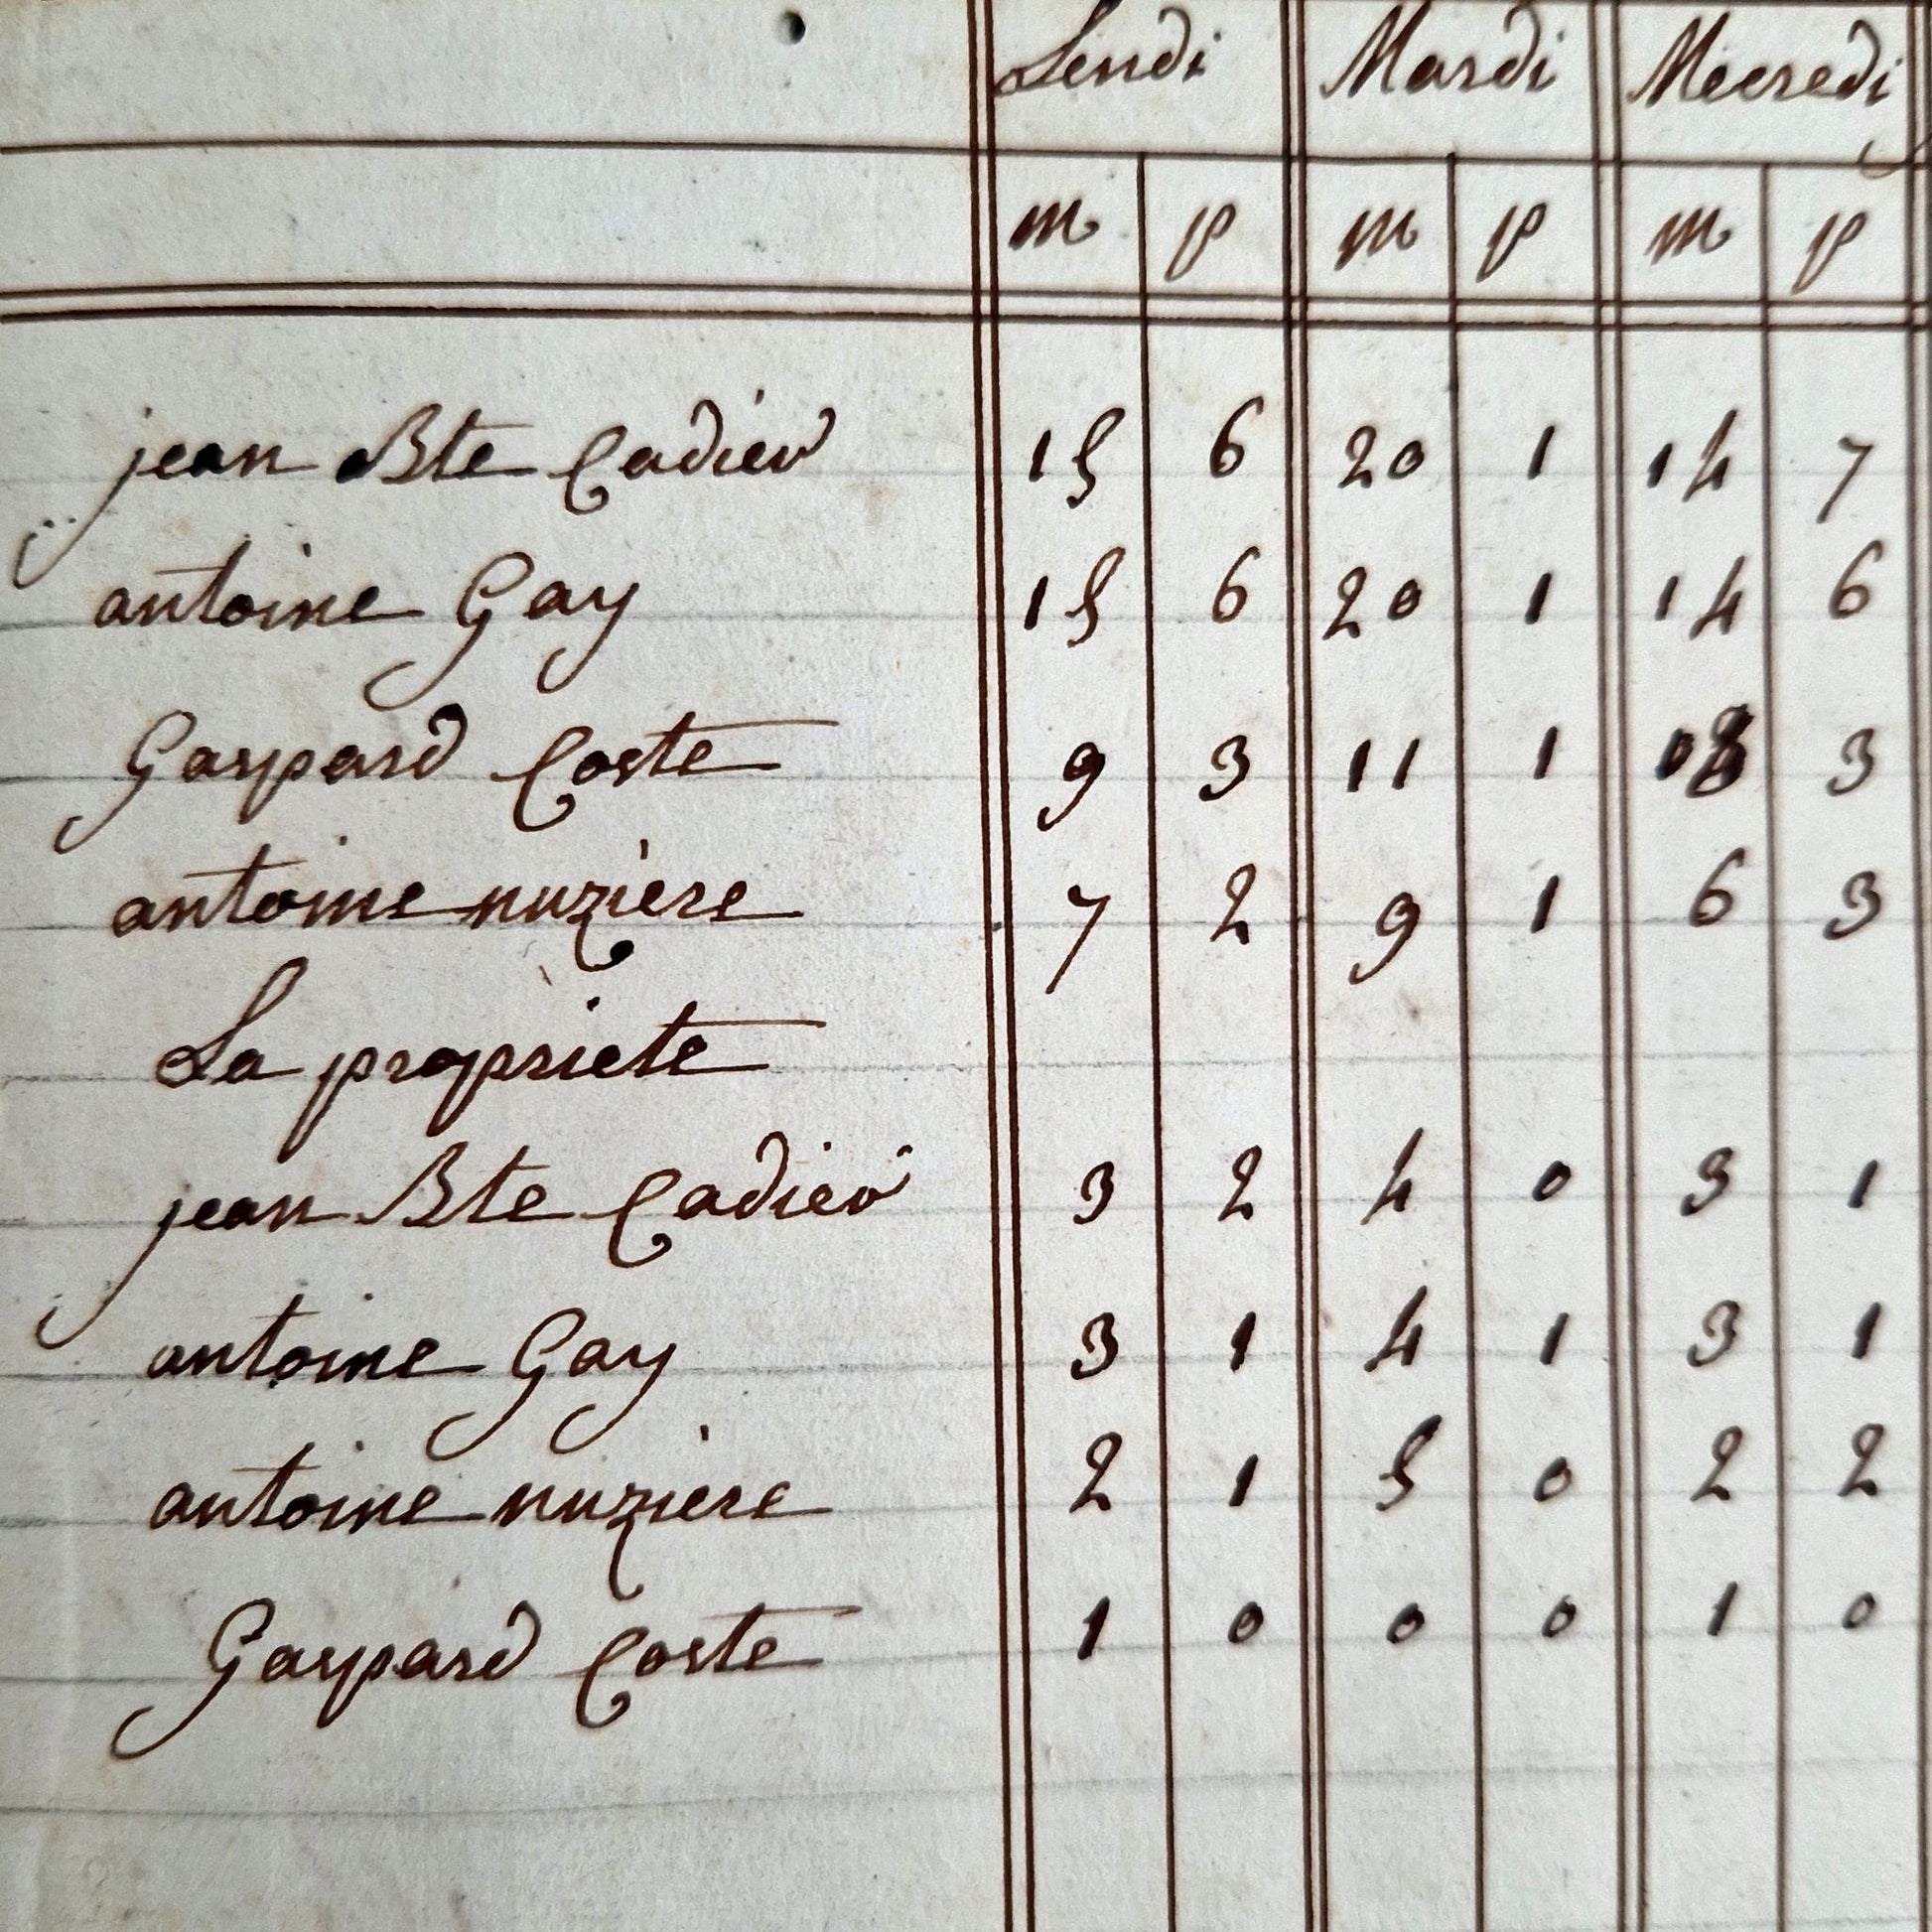 Lendi Mardi Mecredi
m p m p m p
jean Bte Cadieu 15 6 20 1 14 7
antoine Gay 15 6 20 1 14 6
Gaspard Coste 9 3 11 1 08 3
antoine nuziere 7 2 9 1 6 3
La propriete
jean Bte Cadieu 3 2 4 0 3 1
antoine Gay 3 1 4 1 3 1
antoine nuziere 2 1 5 0 2 2
Gaspard Coste 1 0 0 0 1 0